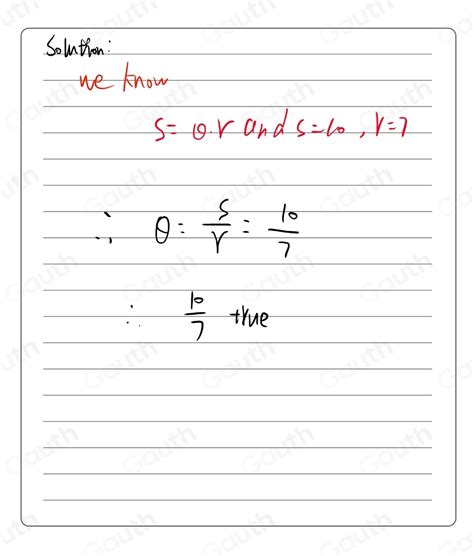 Solution:
we know
S = θ.r and s=10, r=7
∴ θ = s/r = 10/7
∴ 10/7 true